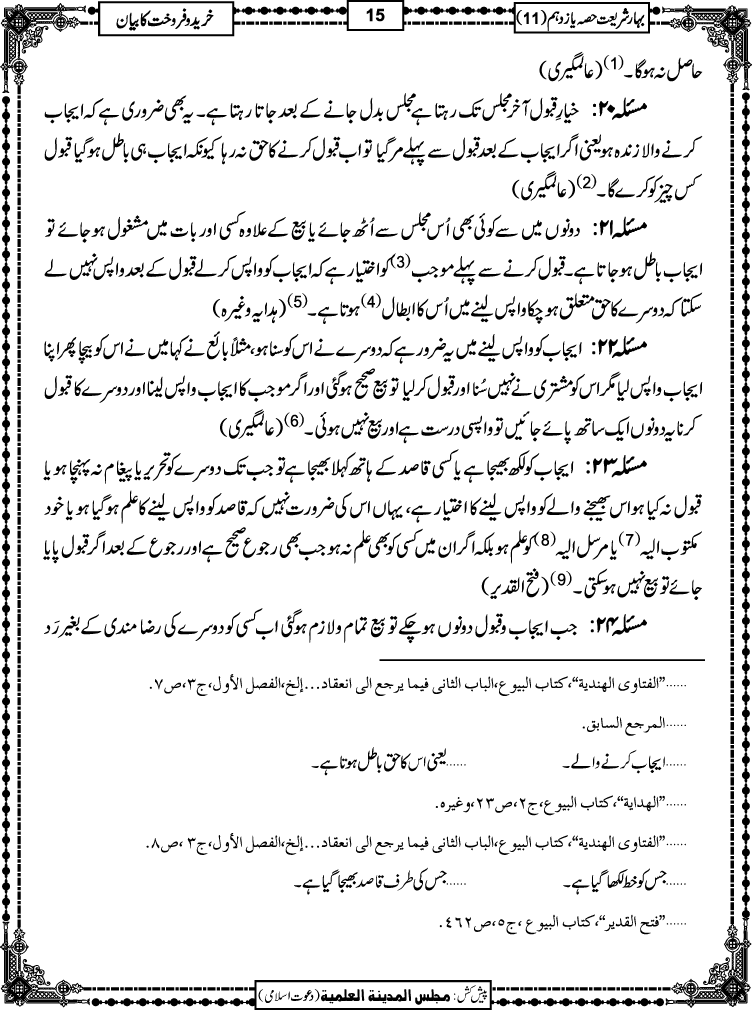 بہار شریعت حصہ یازدہم (11)
15
خرید و فروخت کا بیان
حاصل نہ ہوگا۔(1) (عالمگیری)
مسئلہ ۲۰: خیارِ قبول آخر مجلس تک رہتا ہے مجلس بدل جانے کے بعد جاتا رہتا ہے۔ یہ بھی ضروری ہے کہ ایجاب
کرنے والا زندہ ہو یعنی اگر ایجاب کے بعد قبول سے پہلے مرگیا تو اب قبول کرنے کا حق نہ رہا کیونکہ ایجاب ہی باطل ہوگیا قبول
کس چیز کو کرے گا۔(2) (عالمگیری)
مسئلہ ۲۱: دونوں میں سے کوئی بھی اُس مجلس سے اُٹھ جائے یا بیع کے علاوہ کسی اور بات میں مشغول ہو جائے تو
ایجاب باطل ہو جاتا ہے۔ قبول کرنے سے پہلے موجب(3) کو اختیار ہے کہ ایجاب کو واپس کرلے قبول کے بعد واپس نہیں لے
سکتا کہ دوسرے کا حق متعلق ہوچکا واپس لینے میں اُس کا ابطال(4) ہوتا ہے۔(5) (ہدایہ وغیرہ)
مسئلہ ۲۲: ایجاب کو واپس لینے میں یہ ضرور ہے کہ دوسرے نے اس کو سنا ہو، مثلاً بائع نے کہا میں نے اس کو بیچا پھر اپنا
ایجاب واپس لیا مگر اس کو مشتری نے نہیں سُنا اور قبول کرلیا تو بیع صحیح ہوگئی اور اگر موجب کا ایجاب واپس لینا اور دوسرے کا قبول
کرنا یہ دونوں ایک ساتھ پائے جائیں تو واپسی درست ہے اور بیع نہیں ہوئی۔(6) (عالمگیری)
مسئلہ ۲۳: ایجاب کو لکھ بھیجا ہے یا کسی قاصد کے ہاتھ کہلا بھیجا ہے تو جب تک دوسرے کو تحریر یا پیغام نہ پہنچا ہو یا
قبول نہ کیا ہو اس بھیجنے والے کو واپس لینے کا اختیار ہے، یہاں اس کی ضرورت نہیں کہ قاصد کو واپس لینے کا علم ہوگیا ہو یا خود
مکتوب الیہ(7) یا مرسل الیہ(8) کو علم ہو بلکہ اگر ان میں کسی کو بھی علم نہ ہو جب بھی رجوع صحیح ہے اور رجوع کے بعد اگر قبول پایا
جائے تو بیع نہیں ہوسکتی۔(9) (فتح القدیر)
مسئلہ ۲۴: جب ایجاب و قبول دونوں ہوچکے تو بیع تمام و لازم ہوگئی اب کسی کو دوسرے کی رضا مندی کے بغیر رَد
......”الفتاوی الهندية“،کتاب البيوع،الباب الثانی فيما يرجع الی انعقاد...إلخ،الفصل الأول،ج۳،ص۷.
......المرجع السابق.
......ایجاب کرنے والے۔ ......یعنی اس کا حق باطل ہوتا ہے۔
......”الهداية“،کتاب البيوع،ج۲،ص۲۳،وغیرہ.
......”الفتاوی الهندية“،کتاب البيوع،الباب الثانی فيما يرجع الی انعقاد...إلخ،الفصل الأول،ج۳،ص۸.
......جس کو خط لکھا گیا ہے۔ ......جس کی طرف قاصد بھیجا گیا ہے۔
......”فتح القدير“،کتاب البيوع،ج۵،ص٤٦٢.
پیش کش: مجلس المدینة العلمیة (دعوت اسلامی)